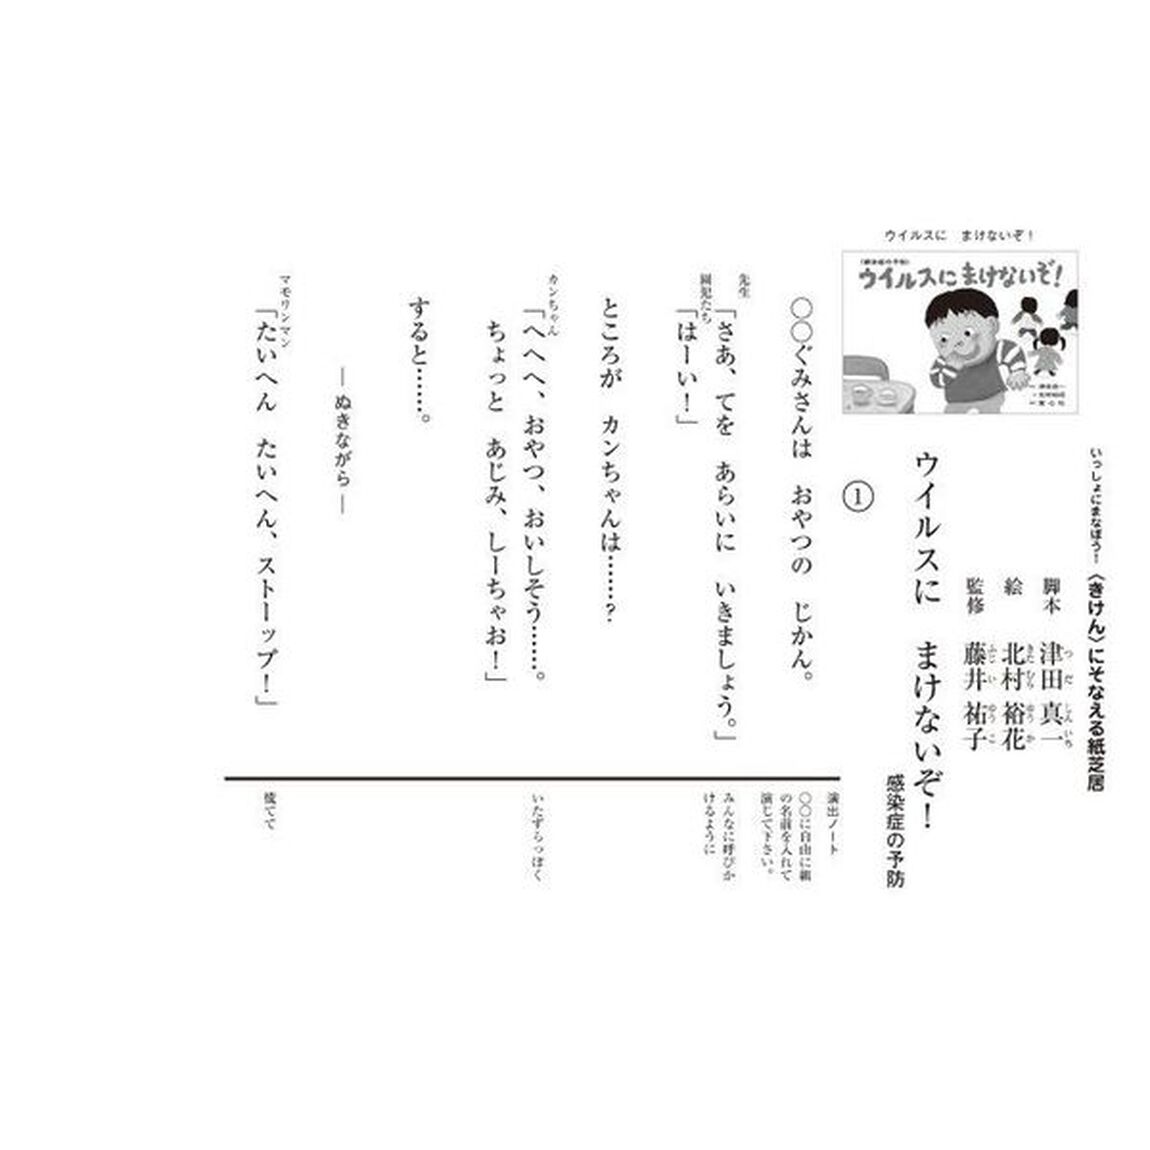 ウイルスに　まけないぞ！
〈感染症の予防〉
ウイルスにまけないぞ！
いっしょにまなぼう！〈きけん〉にそなえる紙芝居
脚本　津田真一
つだ　しんいち
絵　北村裕花
きたむら　ゆうか
監修　藤井祐子
ふじい　ゆうこ
ウイルスに　まけないぞ！
感染症の予防
①
〇〇ぐみさんは　おやつの　じかん。
先生
「さあ、てを　あらいに　いきましょう。」
園児たち
「はーい！」
ところが　カンちゃんは……？
カンちゃん
「へへへ、おやつ、おいしそう……。
ちょっと　あじみ、しーちゃお！」
すると……。
―ぬきながら―
マモリンマン
「たいへん　たいへん、ストーップ！」
演出ノート
〇〇に自由に組
の名前を入れて
演じて下さい。
みんなに呼びか
けるように
いたずらっぽく
慌てて